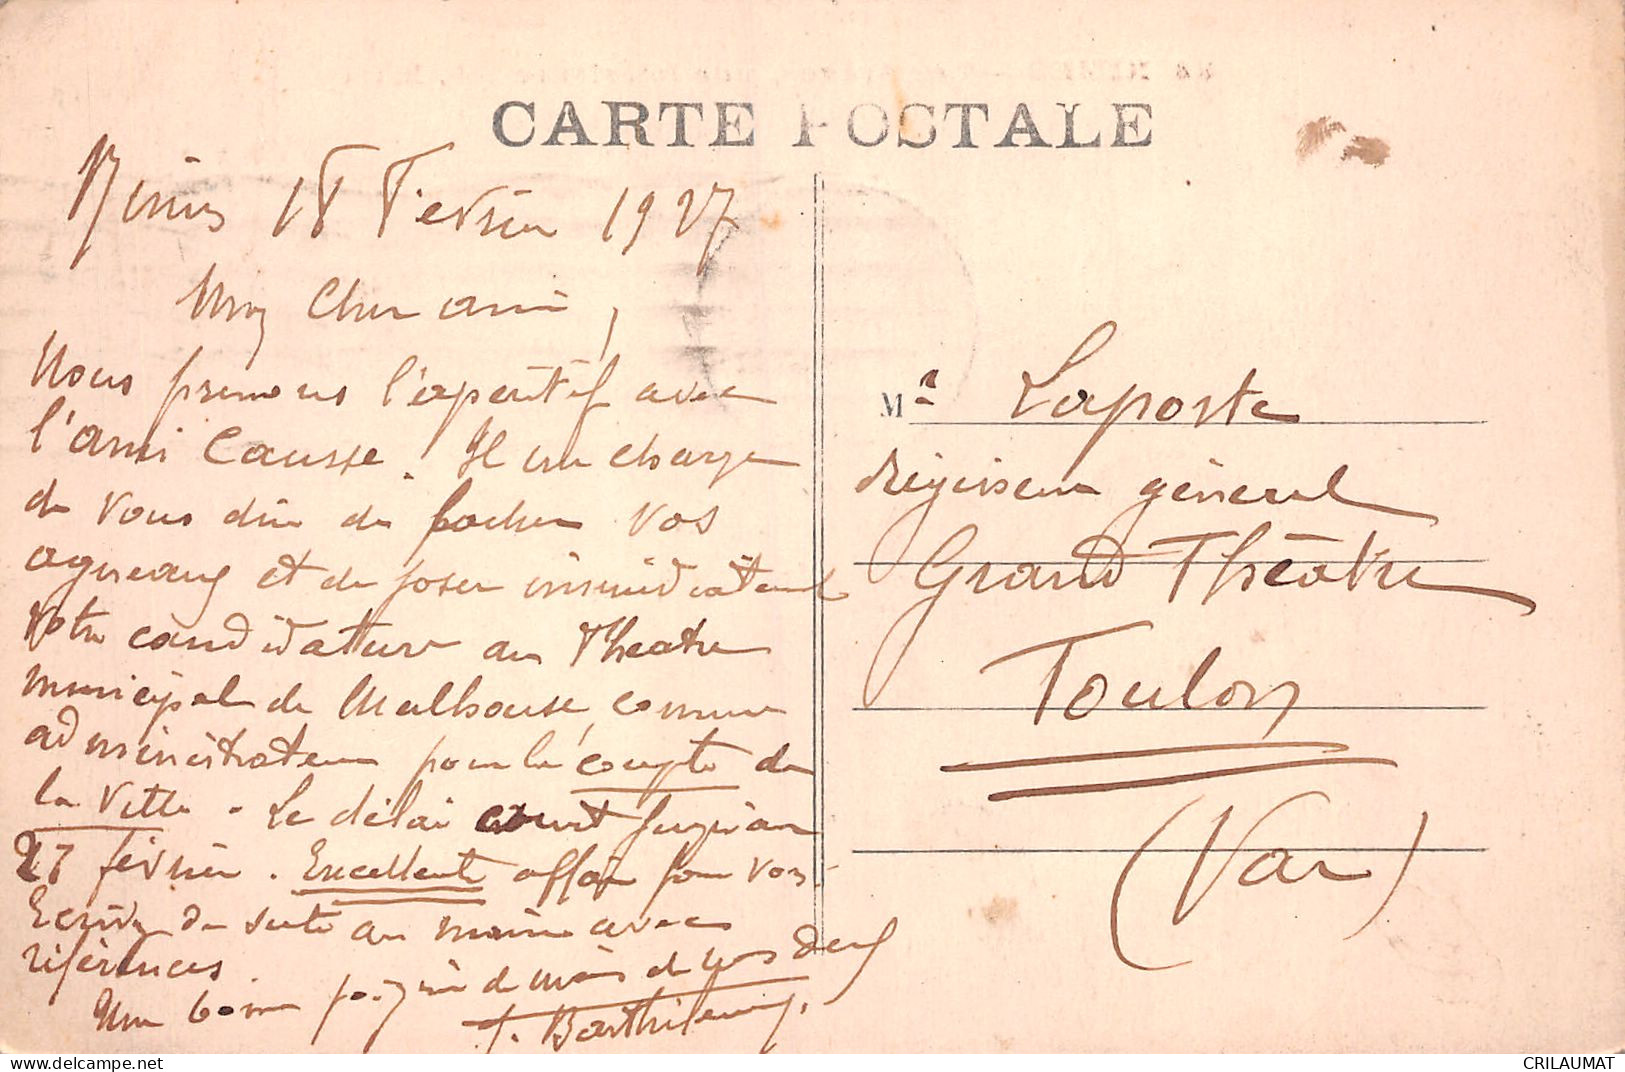 CARTE POSTALE
18 Février 1927
Mon Cher ami,
Nous prenons l'apéritif avec
l'ami Causse. Il me charge
de vous dire de lacher vos
agneaux et de poser immédiatement
votre candidature au Théatre
municipal de Mulhouse, comme
administrateur pour le compte de
la Ville. Le délai court jusqu'au
27 février. Excellente affaire pour vous.
Ecrivez de suite au maire avec
références.
Une bonne poignée de mains de nous deux
J. Barthélemy.
Mr Laporte
Régisseur général
Grand Théâtre
Toulon
(Var)
CRILAUMAT